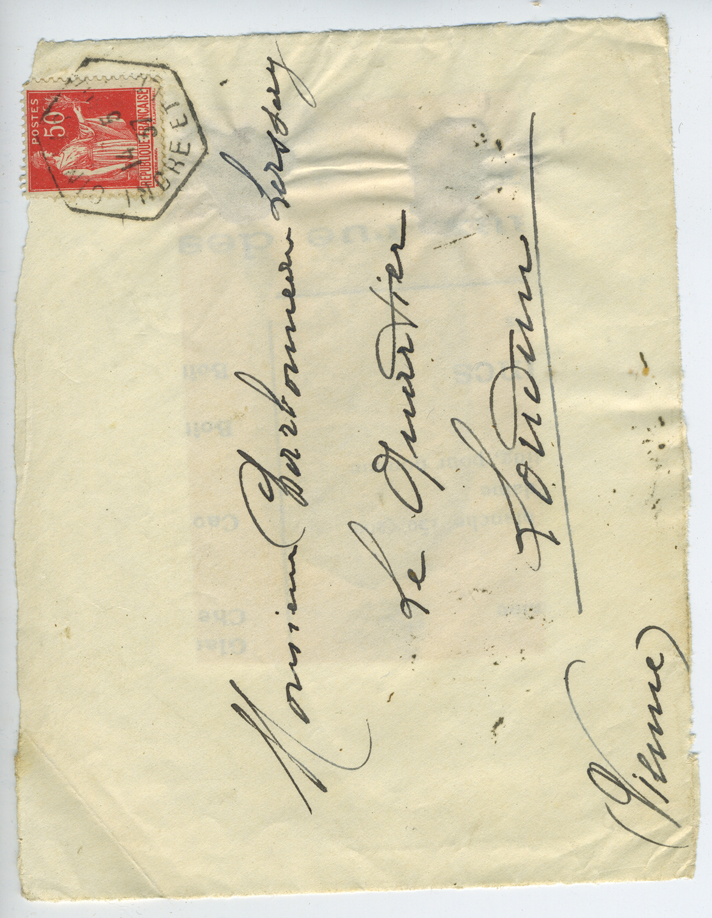 POSTES
50c
REPUBLIQUE FRANCAISE
INDRE ET
Monsieur Charbonneau Lersary
Le Quartier
Loudun
(Vienne)